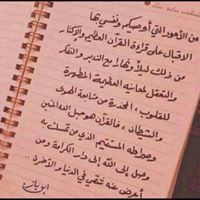 من الأمور التي أوصيكم ونفسي بها
الاقبال على قراءة القرآن العظيم والإكثار
من ذلك ليلاً ونهاراً مع التدبر والتفكر
والتعقل لمعانيه العظيمة المطهرة
للقلوب، المحذرة من متابعة الهوى
والشيطان، فالقرآن هو حبل الله المتين
وصراطه المستقيم الذي من تمسك به
وصل إلى الله إلى دار الكرامة ومن
أعرض عنه شقي في الدنيا والآخرة..
ابن باز